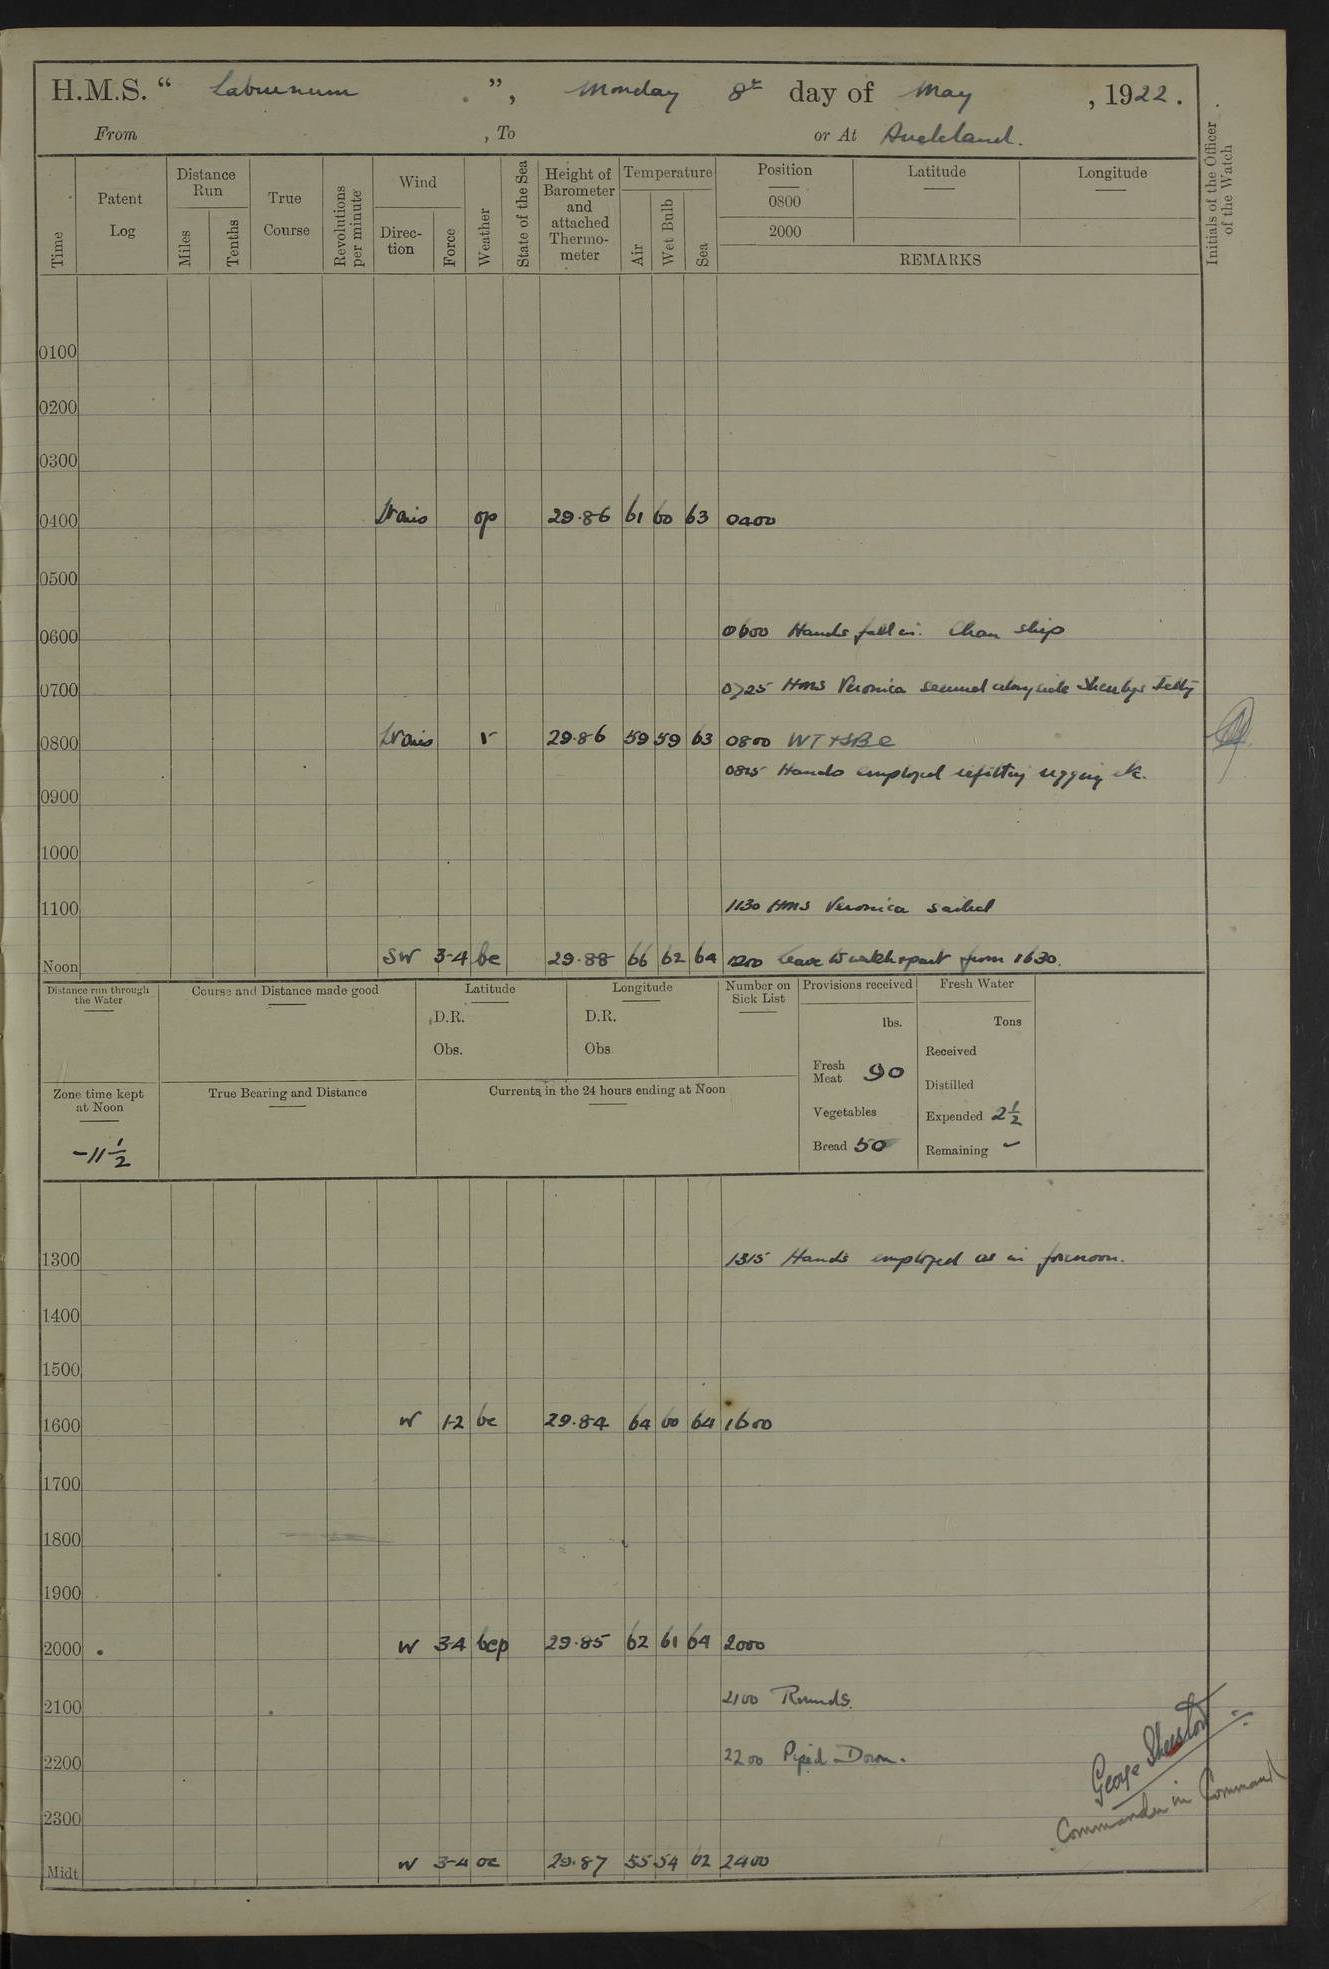 H.M.S. “ Laburnum ”, Monday 8th day of May , 1922.
From , To or At Auckland.
Time
Patent Log
Distance Run
Miles
Tenths
True Course
Revolutions per minute
Wind
Direc-tion
Force
Weather
State of the Sea
Height of Barometer and attached Thermo-meter
Temperature
Air
Wet Bulb
Sea
Position
0800
2000
Latitude
Longitude
REMARKS
Initials of the Officer of the Watch
0100
0200
0300
0400 op 29.86 61 60 63 0400
0500
0600 0600 Hands fall in. Clean ship
0700 0725 HMS Veronica secured alongside Jetty
0800 r 29.86 59 59 63 0800
0815 Hands employed refitting rigging etc.
0900
1000
1100 1130 HMS Veronica sailed
Noon SW 3-4 bc 29.88 66 62 64 1200 Leave to watch & part from 1630.
Distance run through the Water
Course and Distance made good
Latitude
D.R.
Obs.
Longitude
D.R.
Obs.
Number on Sick List
Provisions received
lbs.
Fresh Meat 90
Vegetables
Bread 50
Fresh Water
Tons
Received
Distilled
Expended 2½
Remaining -
Zone time kept at Noon
-11½
True Bearing and Distance
Currents in the 24 hours ending at Noon
1300 1315 Hands employed as in forenoon.
1400
1500
1600 W 1-2 bc 29.84 64 60 64 1600
1700
1800
1900
2000 W 3-4 bcp 29.85 62 61 64 2000
2100 2100 Rounds.
2200 2200 Piped Down.
2300
Midt W 3-4 oc 29.87 55 54 62 2400
George
Commander in Command